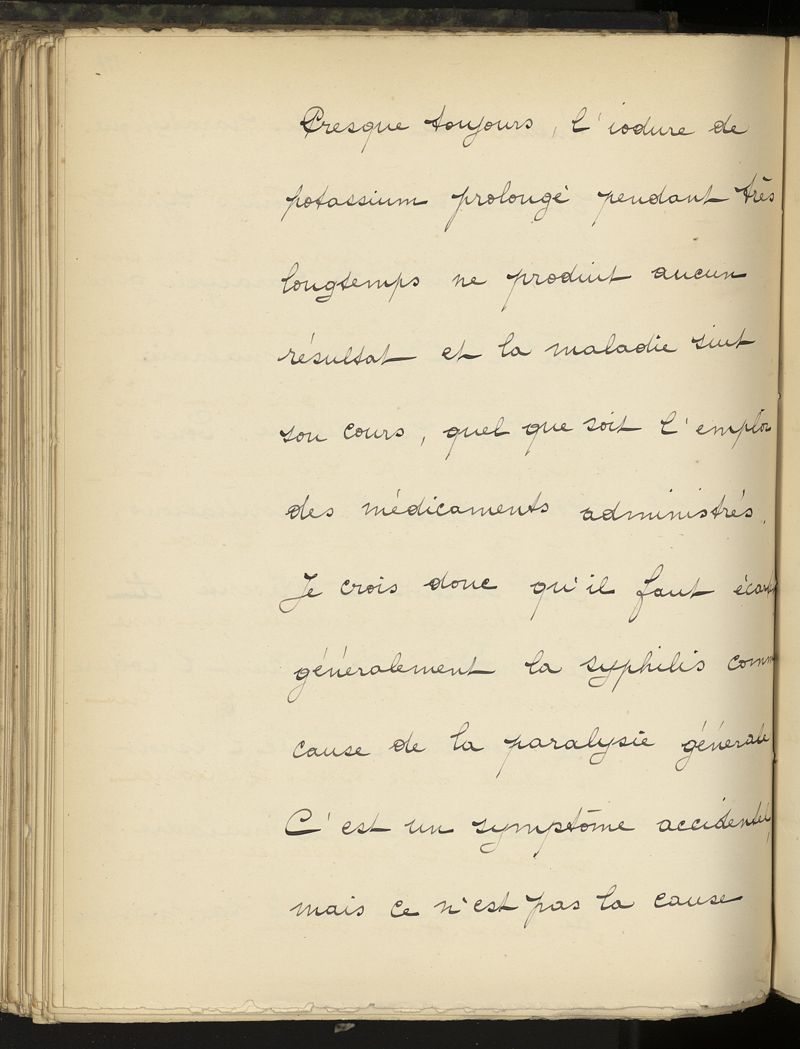 Presque toujours, l'iodure de
potassium prolongé pendant très
longtemps ne produit aucun
résultat et la maladie suit
son cours, quel que soit l'emploi
des médicaments administrés.
Je crois donc qu'il faut écarter
généralement la syphilis comme
cause de la paralysie générale
C'est un symptôme accidentel,
mais ce n'est pas la cause